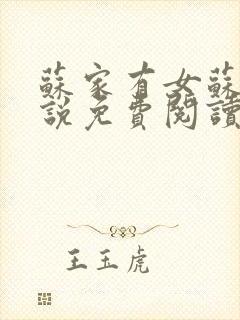 蘇家有女蘇
說免費閱讀
王玉虎